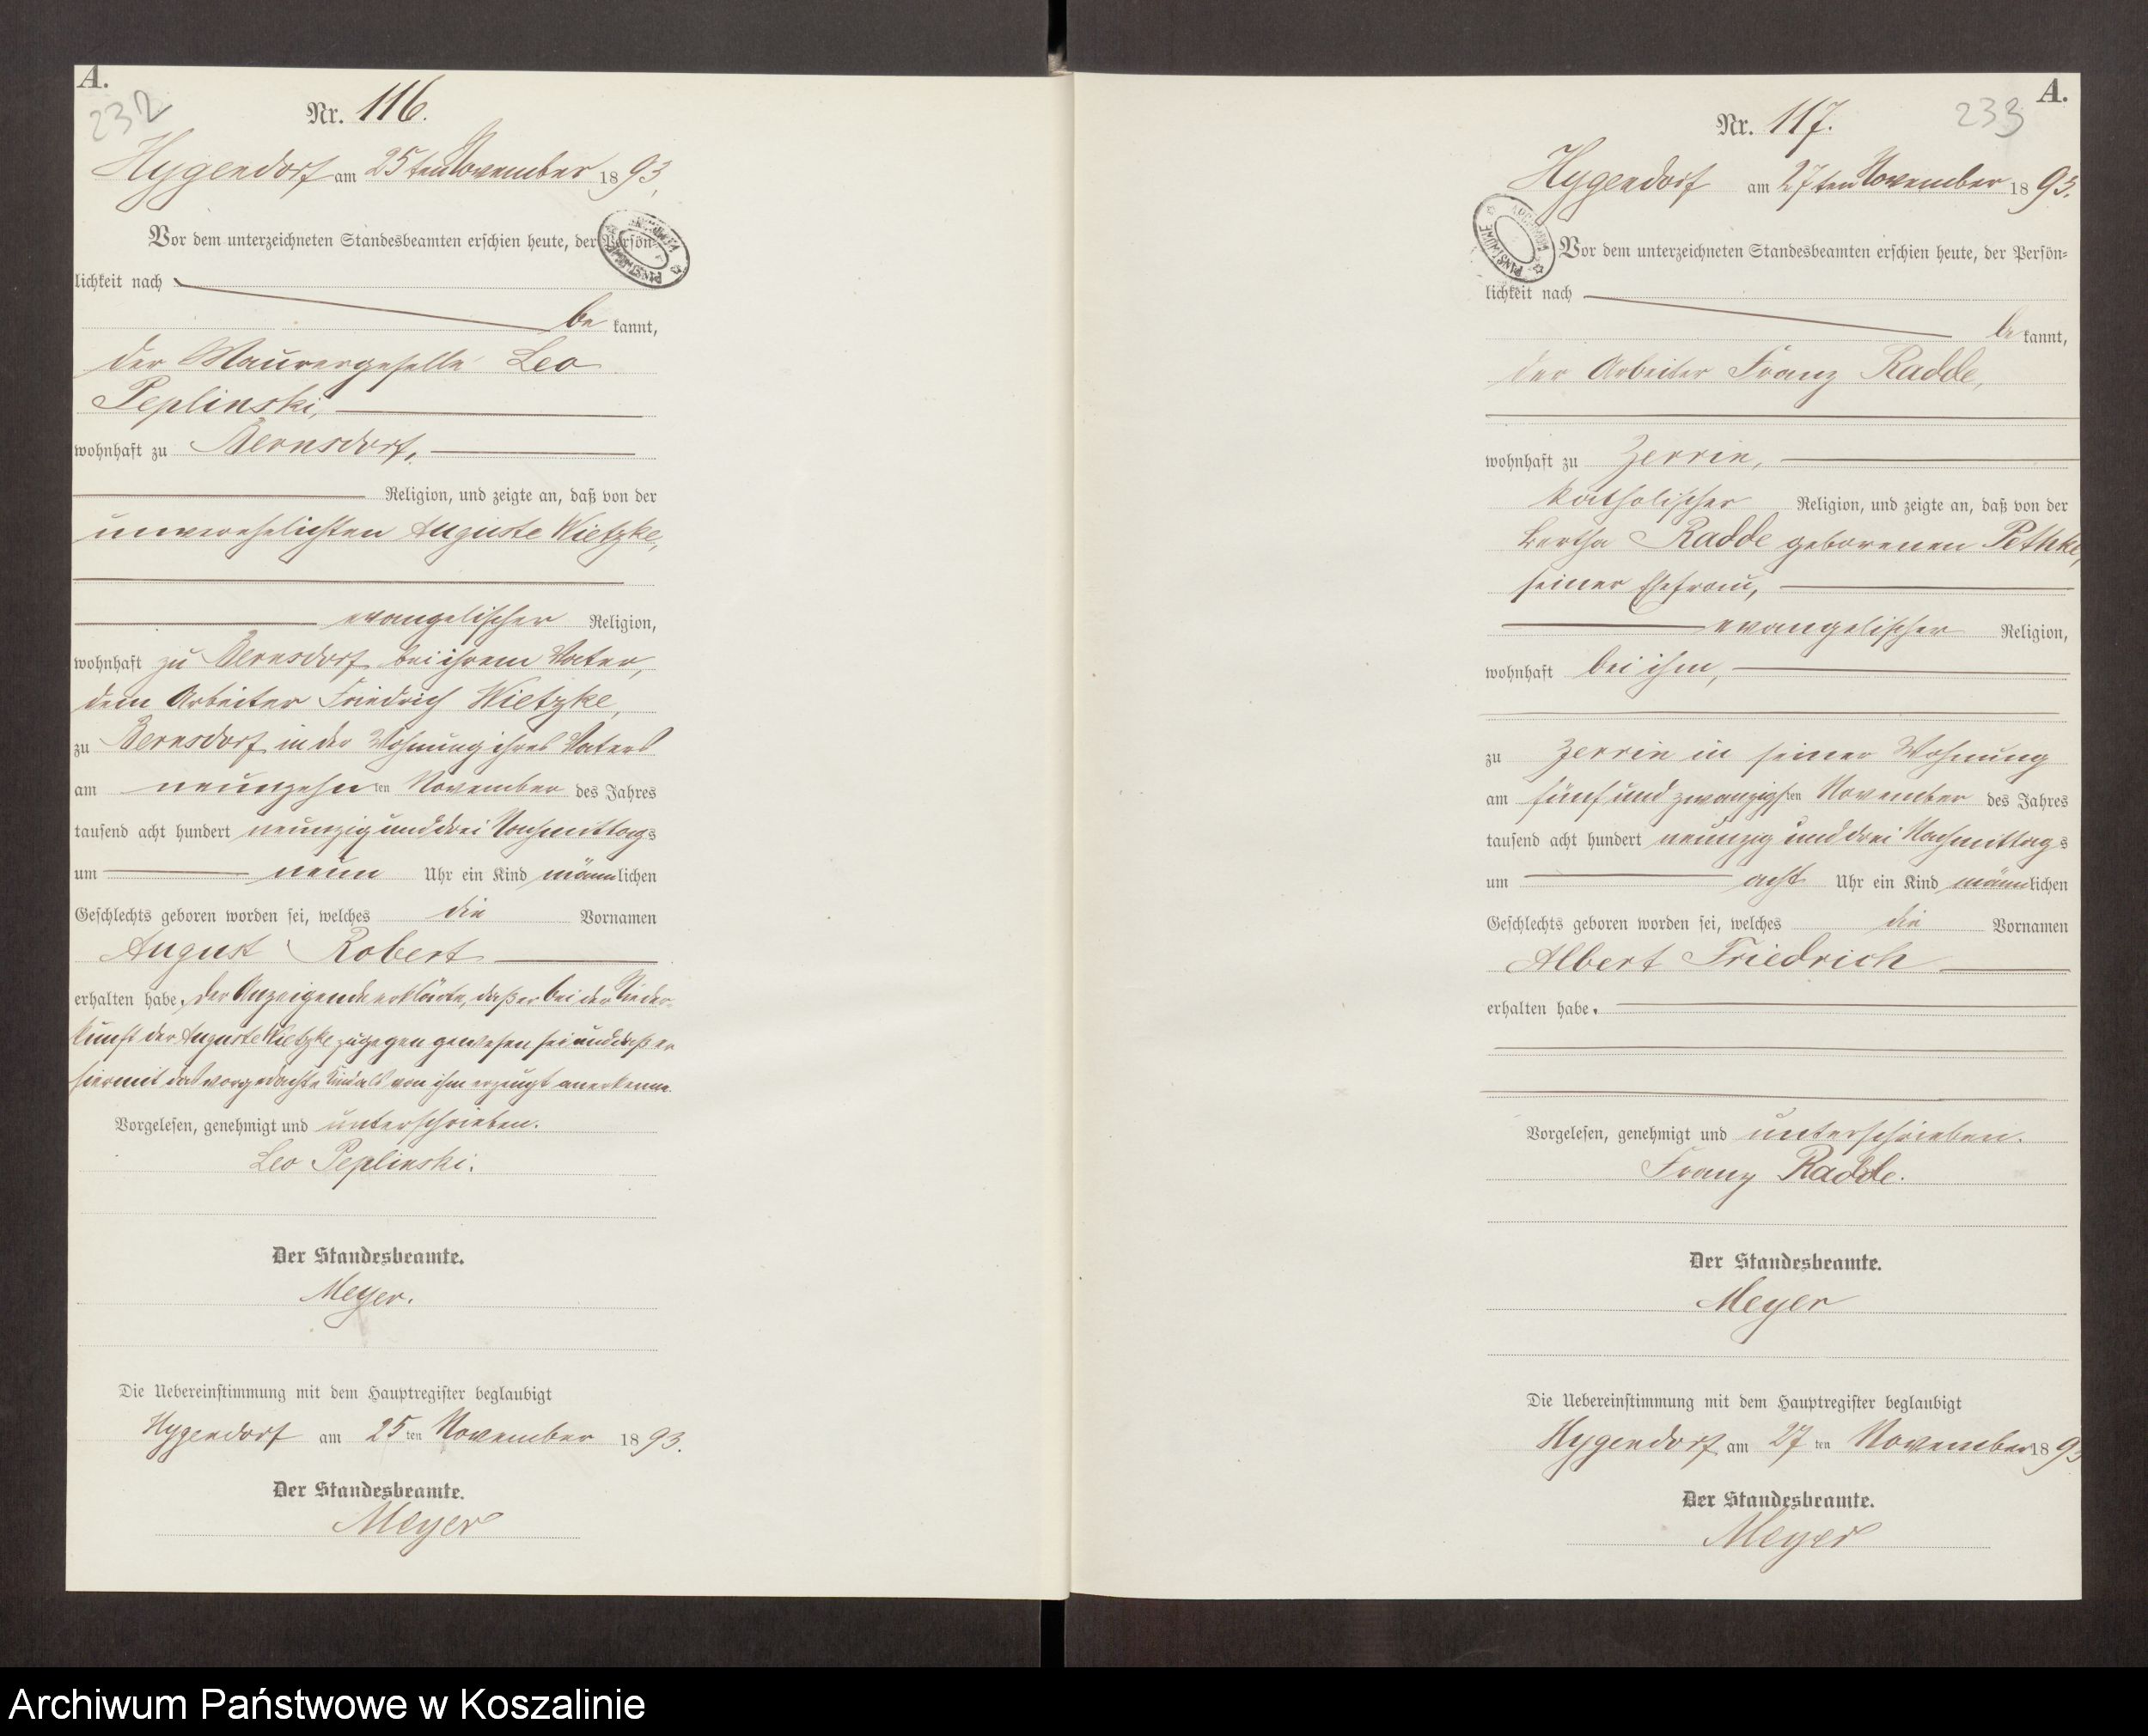 A.
232
Nr. 116.
Hygendorf am 25ten November 1893.
Vor dem unterzeichneten Standesbeamten erschien heute, der Persön-
lichkeit nach
be kannt,
der Maurergeselle Leo
Peplinski,
wohnhaft zu Bernsdorf,
Religion, und zeigte an, daß von der
unverehelichten Auguste Wietzke,
evangelischer Religion,
wohnhaft zu Bernsdorf bei ihrem Vater,
dem Arbeiter Friedrich Wietzke,
zu Bernsdorf in der Wohnung ihres Vaters
am neunzehnten November des Jahres
tausend acht hundert neunzig und drei Nachmittags
um neun Uhr ein Kind männlichen
Geschlechts geboren worden sei, welches die Vornamen
August Robert
erhalten habe. Der Anzeigende erklärte, daß er bei der Nieder-
kunft der Auguste Wietzke zugegen gewesen sei und daß er
hiermit das vorgedachte Kind als von ihm erzeugt anerkenne.
Vorgelesen, genehmigt und unterschrieben.
Leo Peplinski.
Der Standesbeamte.
Meyer.
Die Uebereinstimmung mit dem Hauptregister beglaubigt
Hygendorf am 25ten November 1893.
Der Standesbeamte.
Meyer
A.
233
Nr. 117.
Hygendorf am 27ten November 1893.
Vor dem unterzeichneten Standesbeamten erschien heute, der Persön-
lichkeit nach
be kannt,
der Arbeiter Franz Radde,
wohnhaft zu Zerrin,
katholischer Religion, und zeigte an, daß von der
Bertha Radde geborenen Pethke,
seiner Ehefrau,
evangelischer Religion,
wohnhaft bei ihm,
zu Zerrin in seiner Wohnung
am fünf und zwanzigsten November des Jahres
tausend acht hundert neunzig und drei Nachmittags
um acht Uhr ein Kind männlichen
Geschlechts geboren worden sei, welches die Vornamen
Albert Friedrich
erhalten habe.
Vorgelesen, genehmigt und unterschrieben.
Franz Radde.
Der Standesbeamte.
Meyer
Die Uebereinstimmung mit dem Hauptregister beglaubigt
Hygendorf am 27ten November 1893
Der Standesbeamte.
Meyer
Archiwum Państwowe w Koszalinie